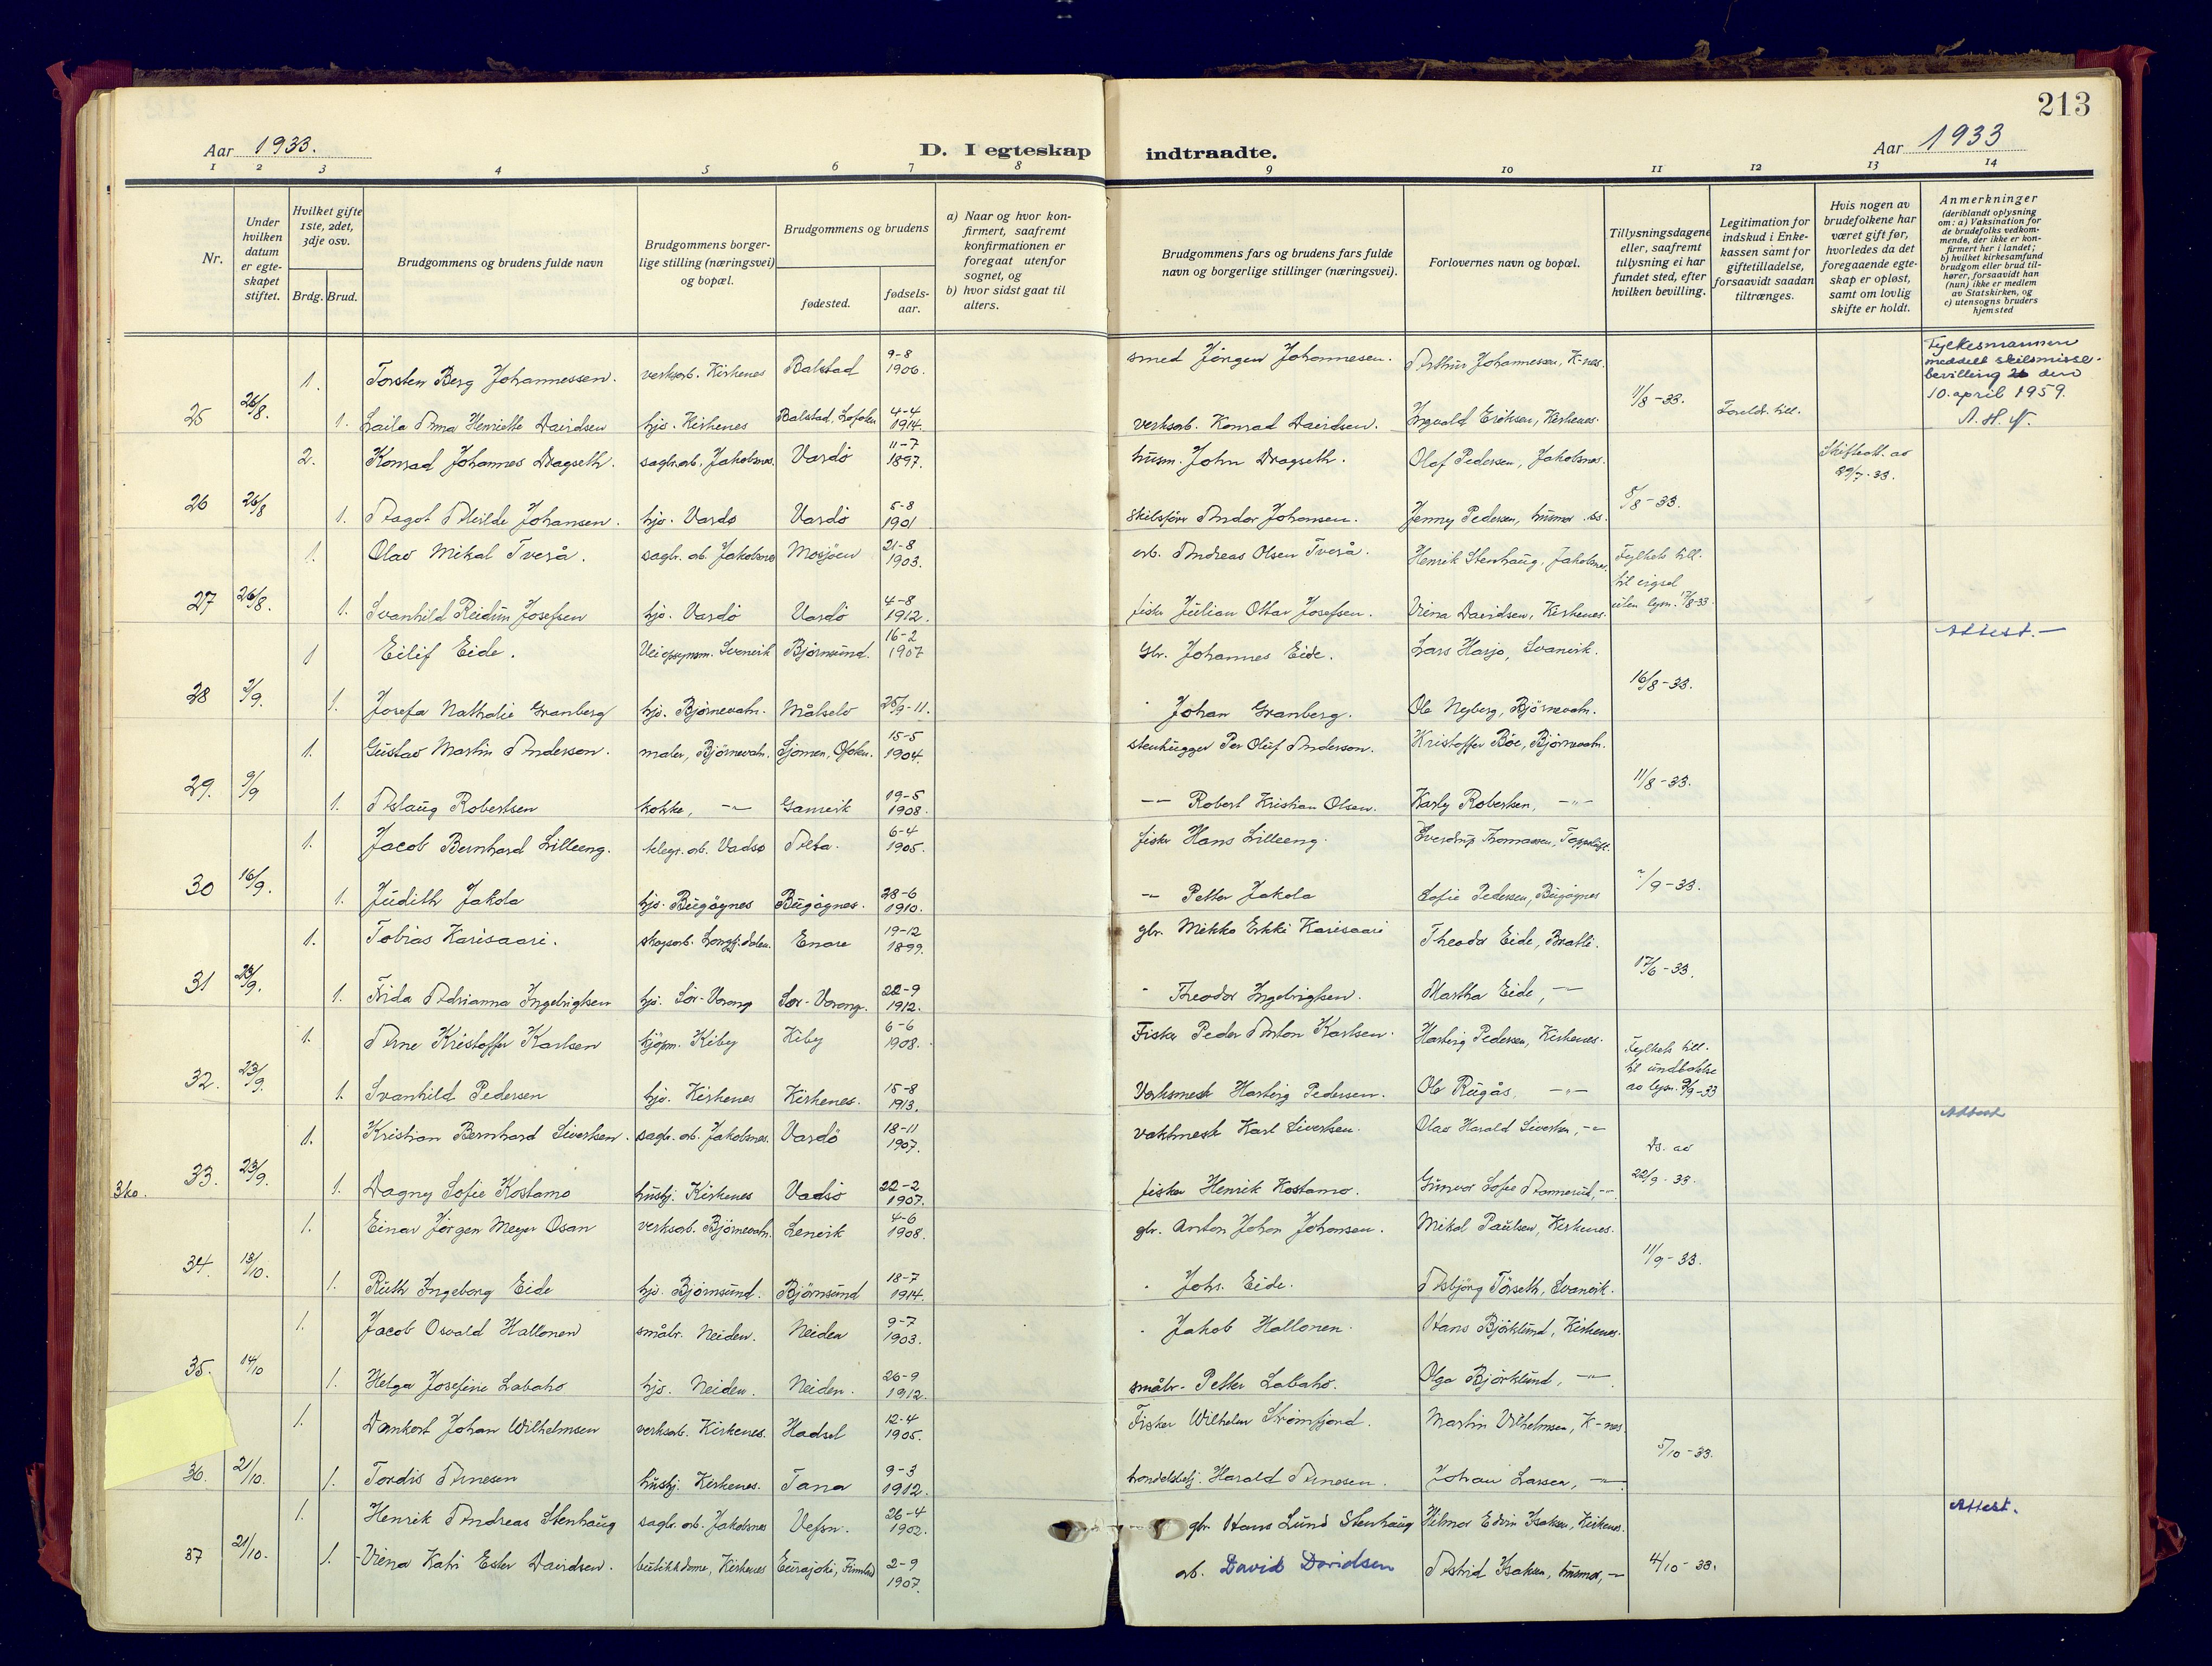 213
Aar 1933.
D. I egteskap indtraadte.
Aar 1933
1 2 3 4 5 6 7 8 9 10 11 12 13 14
Nr.
Under hvilken datum er egteskapet stiftet.
Hvilket gifte 1ste, 2det, 3dje osv.
Brdg. Brud.
Brudgommens og brudens fulde navn
Brudgommens borgerlige stilling (næringsvei) og bopæl.
Brudgommens og brudens
fødested. fødselsaar.
a) Naar og hvor konfirmert, saafremt konfirmationen er foregaat utenfor sognet, og
b) hvor sidst gaat til alters.
Brudgommens fars og brudens fars fulde navn og borgerlige stillinger (næringsvei).
Forlovernes navn og bopæl.
Tillysningsdagene eller, saafremt tillysning ei har fundet sted, efter hvilken bevilling.
Legitimation for indskud i Enkekassen samt for giftetilladelse, forsaavidt saadan tiltrænges.
Hvis nogen av brudefolkene har været gift før, hvorledes da det foregaaende egteskap er opløst, samt om lovlig skifte er holdt.
Anmerkninger
(deriblandt oplysning om: a) Vaksination for de brudefolks vedkommende, der ikke er konfirmert her i landet; b) hvilket kirkesamfund brudgom eller brud tilhører, forsaavidt han (hun) ikke er medlem av Statskirken, og c) utensogns bruders hjemsted
1. Torsten Berg Johannessen. verksarb. Kirkenes Balstad 9-8 1906. smed Jörgen Johannesen. Arthur Johannessen, K-nes.
Fylkesmannen meddelt skilsmissebevilling den 10. april 1959. A. H. N.
25 26/8. 1. Laila Anna Henriette Davidsen hjv. Kirkenes Balstad, Lofoten 4-4 1914. verksarb. Konrad Davidsen. Ingvald Eriksen, Kirkenes. 11/8-33. Foreldr. till.
2. Konrad Johannes Dragseth. sagbr.arb. Jakobsnes. Vardö 11-7 1897. husm. John Dragseth. Olaf Pedersen, Jakobsnes. Skifteatt. av 29/7-33.
26 26/8 1. Dagot Alvilde Johansen. hjv. Vardø Vardö 5-8 1901 Skilsförer Andor Johansen. Jenny Pedersen, husmor ss. 5/8-33.
1. Olav Mikal Tverå. sagbr. arb. Jakobsnes Mosjöen 21-8 1903. arb. Andreas Olsen Tverå. Henrik Stenhaug, Jakobsnes. Fylkets till. til vigsel uten lysn. 17/8-33.
27 26/8. 1. Svanhild Reidun Josefsen hjv. Vardö Vardö 4-8 1912. fisker Julian Ottar Josefsen. Viena Davidsen, Kirkenes.
1 Eilif Eide. Veiopsynsm. Svanvik Björnsund. 16-2 1907 Gbr. Johannes Eide. Lars Harjo, Svanvik. Attest.—
28 2/9. 1. Josefa Nathalie Granberg hjv. Björnevatn. Målselv 25/9-11. " Johan Granberg. Ole Nyberg, Björnevatn. 16/8-33.
1. Gustav Martin Anderson. maler, Björnevatn. Sjomen, Ofoten. 15-5 1904. stenhugger Per Oluf Anderson. Kristoffer Böe, Björnevatn.
29. 9/9 1. Aslaug Robertsen kokke, —"— Gamvik 19-5 1908. —"— Robert Kristian Olsen. Karly Robertsen, —"— 11/8-33.
1. Jacob Bernhard Lilleeng. telegr. arb. Vadsø Alta. 6-4 1905. fisker Hans Lilleeng. Sverdrup Thomassen,
30 16/9. 1. Judith Jakola hjv. Bugöynes Bugöynes. 28-6 1910. —"— Petter Jakola Sofie Pedersen, Bugöynes 2/9-33.
1. Tobias Karisaari. skogsarb. Langfj.dalen. Enare 19-12 1899. gbr. Mikko Erkki Karisaari Theodor Eide, Bratli.
31 23/9. 1. Frida Adrianna Ingebrigtsen hjv. Sör-Varang Sør-Varang. 22-9 1912. " Theodor Ingebrigtsen. Martha Eide, —"— 17/6-33.
1. Arne Kristoffer Karlsen kjöpm. Kiby Kiby 6-6 1908. Fisker Peder Anton Karlsen. Hartvig Pedersen, Kirkenes. Fylkets till. til undladelse av lysn. 9/9-33
32. 23/9. 1. Svanhild Pedersen hjv. Kirkenes Kirkenes. 15-8 1913. Verksmest. Hartvig Pedersen. Ole Rugås, —"—
1. Kristian Bernhard Sivertsen. sagbr. arb. Jakobsnes. Vardö 18-11 1907. vaktmest. Karl Sivertsen. Olav Harald Sivertsen, —"— Ds. av 22/9-33. Attest
3ko. 33. 23/9. 1. Dagny Sofie Kostamo hushj. Kirkenes Vadsö 22-2 1907. fisker Henrik Kostamo. Gunvor Sofie Aannerud, —"—
1. Einar Jörgen Meyer Osan verksarb. Björnevatn. Lenvik 4-6 1908. gbr. Anton Johan Johansen. Mikal Paulsen, Kirkenes.
34. 13/10. 1. Ruth Ingeborg Eide hjv. Björnsund. Björnsund 18-7 1914. " Johs. Eide. Asbjörg Törseth, Svanvik. 11/9-33.
1. Jacob Osvald Hallonen småbr. Neiden. Neiden 9-7 1903. " Jakob Hallonen. Hans Björklund, Kirkenes.
35. 14/10 1. Helga Josefine Labaho hjv. Neiden. Neiden. 26-9 1912. småbr. Petter Labaho. Olga Björklund, —"—
1. Dankert Johan Wilhelmsen verksarb. Kirkenes. Hadsel 12-4 1905. Fisker Wilhelm Strömfjord. Martin Vilhelmsen, K-nes.
36. 21/10. 1. Tordis Arnesen hushj. Kirkenes. Tana 9-3 1912. handelsbetj. Harald Arnesen. Johan Larsen, —"— 5/10-33.
1. Henrik Andreas Stenhaug sagbr. arb. Jakobsnes Vefsn. 26-4 1902. gbr. Hans Lund Stenhaug Hilmar Edvin Isaksen, Kirkenes. Attest.
37 21/10. 1. Viena Katri Ester Davidsen. butikkdame, Kirkenes Eurajoki, Finnland 2-9 1907. arb. David Davidsen Astrid Isaksen, husmor, —"— 4/10-33.